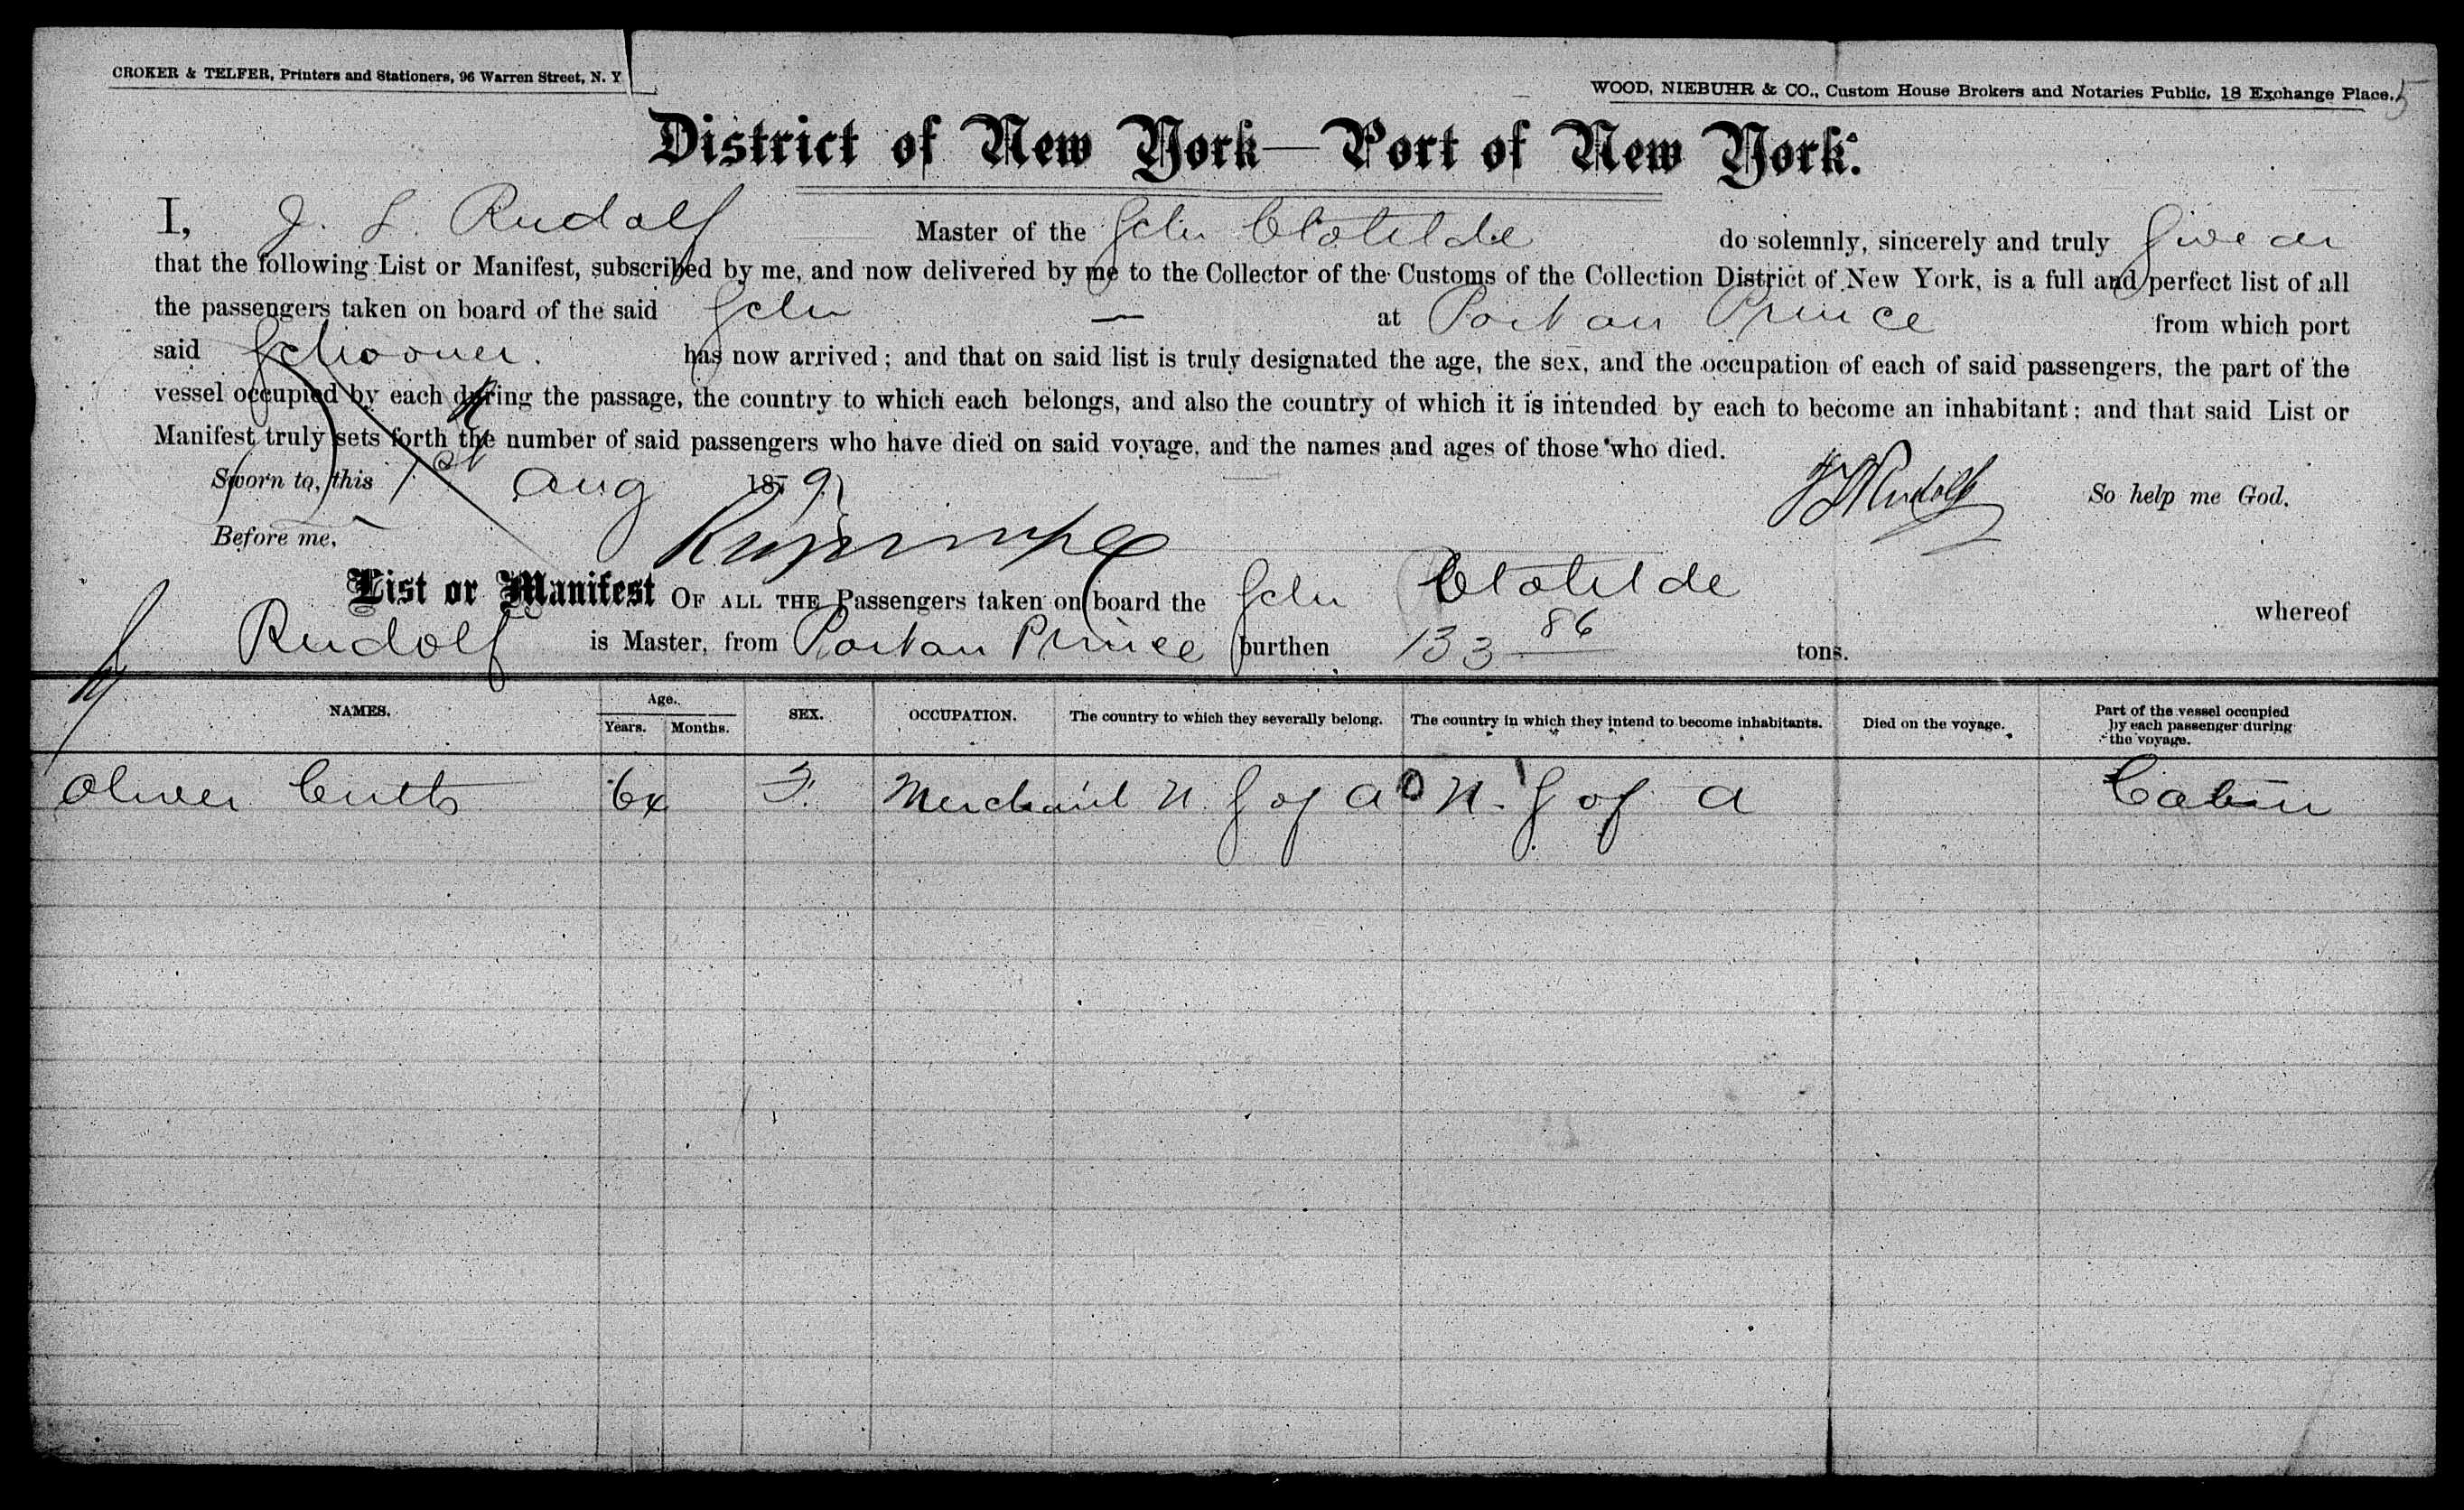 CROKER & TELFER, Printers and Stationers, 96 Warren Street, N. Y
WOOD, NIEBUHR & CO., Custom House Brokers and Notaries Public, 18 Exchange Place. 5
District of New York—Port of New York.
I, J. S. Rudolf Master of the Schr Clotilde do solemnly, sincerely and truly Swear
that the following List or Manifest, subscribed by me, and now delivered by me to the Collector of the Customs of the Collection District of New York, is a full and perfect list of all
the passengers taken on board of the said Schr — at Port au Prince from which port
said Schooner. has now arrived; and that on said list is truly designated the age, the sex, and the occupation of each of said passengers, the part of the
vessel occupied by each during the passage, the country to which each belongs, and also the country of which it is intended by each to become an inhabitant; and that said List or
Manifest truly sets forth the number of said passengers who have died on said voyage, and the names and ages of those who died.
Sworn to, this 1st Aug 1879 J S Rudolf So help me God.
Before me,
List or Manifest OF ALL THE Passengers taken on board the Schr Clotilde whereof
Rudolf is Master, from Port au Prince burthen 133 86 tons.
NAMES. Age. Years. Months. SEX. OCCUPATION. The country to which they severally belong. The country in which they intend to become inhabitants. Died on the voyage. Part of the vessel occupied by each passenger during the voyage.
Oliver Cutts 64 Merchant U. S of A U. S of A Cabin